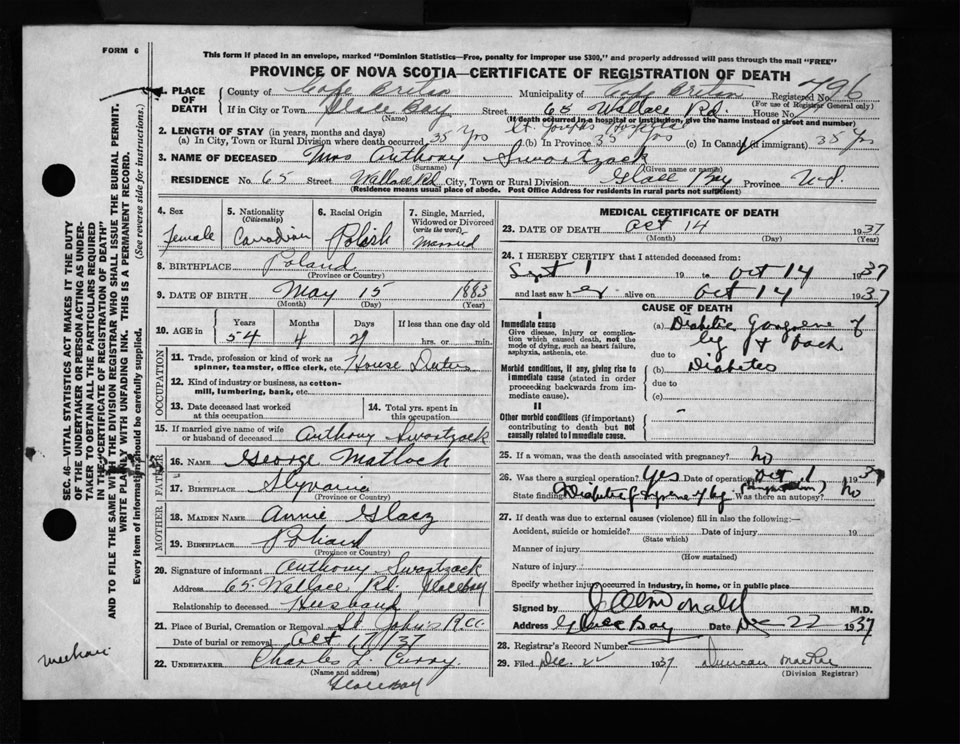 FORM 6
This form if placed in an envelope, marked "Dominion Statistics—Free, penalty for improper use $300," and properly addressed will pass through the mail "FREE"
PROVINCE OF NOVA SCOTIA—CERTIFICATE OF REGISTRATION OF DEATH
1. PLACE OF DEATH
County of Cape Breton Municipality of Cape Breton Registered No. 796
(For use of Registrar General only)
If in City or Town Glace Bay Street 65 Wallace Rd. House No.
(Name) (If death occurred in a hospital or institution, give the name instead of street and number)
St. Josephs Hospital
2. LENGTH OF STAY (in years, months and days)
(a) In City, Town or Rural Division where death occurred 35 Yrs (b) In Province 35 Yrs (c) In Canada (if immigrant) 35 Yrs
3. NAME OF DECEASED Mrs Anthony Swartzack
(Surname) (Given name or names)
RESIDENCE No. 65 Street Wallace Rd City, Town or Rural Division Glace Bay Province N.S.
(Residence means usual place of abode. Post Office Address for residents in rural parts not sufficient)
4. Sex Female
5. Nationality (Citizenship) Canadian
6. Racial Origin Polish
7. Single, Married, Widowed or Divorced (write the word) Married
8. BIRTHPLACE Poland
(Province or Country)
9. DATE OF BIRTH May 15 1883
(Month) (Day) (Year)
10. AGE in Years Months Days If less than one day old
54 4 hrs. or min.
OCCUPATION
11. Trade, profession or kind of work as spinner, teamster, office clerk, etc. House Duties
12. Kind of industry or business, as cotton-mill, lumbering, bank, etc.
13. Date deceased last worked at this occupation
14. Total yrs. spent in this occupation
15. If married give name of wife or husband of deceased Anthony Swartzack
FATHER
16. NAME George Matlock
17. BIRTHPLACE
(Province or Country)
MOTHER
18. MAIDEN NAME Annie
19. BIRTHPLACE Poland
(Province or Country)
20. Signature of informant Anthony Swartzack
Address 65 Wallace Rd. Glace Bay
Relationship to deceased Husband
21. Place of Burial, Cremation or Removal St. John's
Date of burial or removal Oct 17/37
22. UNDERTAKER Charles L. Curry.
(Name and address)
Glace Bay
MEDICAL CERTIFICATE OF DEATH
23. DATE OF DEATH Oct 14 1937
(Month) (Day) (Year)
24. I HEREBY CERTIFY that I attended deceased from:
Sept 1 19 to Oct 14 1937
and last saw her alive on Oct 14 1937
CAUSE OF DEATH
I
Immediate cause
Give disease, injury or complication which caused death, not the mode of dying, such as heart failure, asphyxia, asthenia, etc.
(a) Diabetic Gangrene of leg & back
due to
Morbid conditions, if any, giving rise to immediate cause (stated in order proceeding backwards from immediate cause).
(b) Diabetes
due to
(c)
II
Other morbid conditions (if important) contributing to death but not causally related to immediate cause.
25. If a woman, was the death associated with pregnancy? No
26. Was there a surgical operation? Yes Date of operation Oct 1 1937
State findings Diabetic Gangrene of leg Was there an autopsy? No
27. If death was due to external causes (violence) fill in also the following:—
Accident, suicide or homicide? Date of injury 19
(State which)
Manner of injury
(How sustained)
Nature of injury
Specify whether injury occurred in industry, in home, or in public place
Signed by M.D.
Address Glace Bay Date Dec 22 1937
28. Registrar's Record Number
29. Filed Dec. 22 1937 Duncan
(Division Registrar)
SEC. 46—VITAL STATISTICS ACT MAKES IT THE DUTY
OF THE UNDERTAKER OR PERSON ACTING AS UNDERTAKER TO OBTAIN ALL THE PARTICULARS REQUIRED
IN THE "CERTIFICATE OF REGISTRATION OF DEATH"
AND TO FILE THE SAME WITH THE DIVISION REGISTRAR WHO SHALL ISSUE THE BURIAL PERMIT.
WRITE PLAINLY WITH UNFADING INK. THIS IS A PERMANENT RECORD.
Every item of information should be carefully supplied. (See reverse side for instructions.)